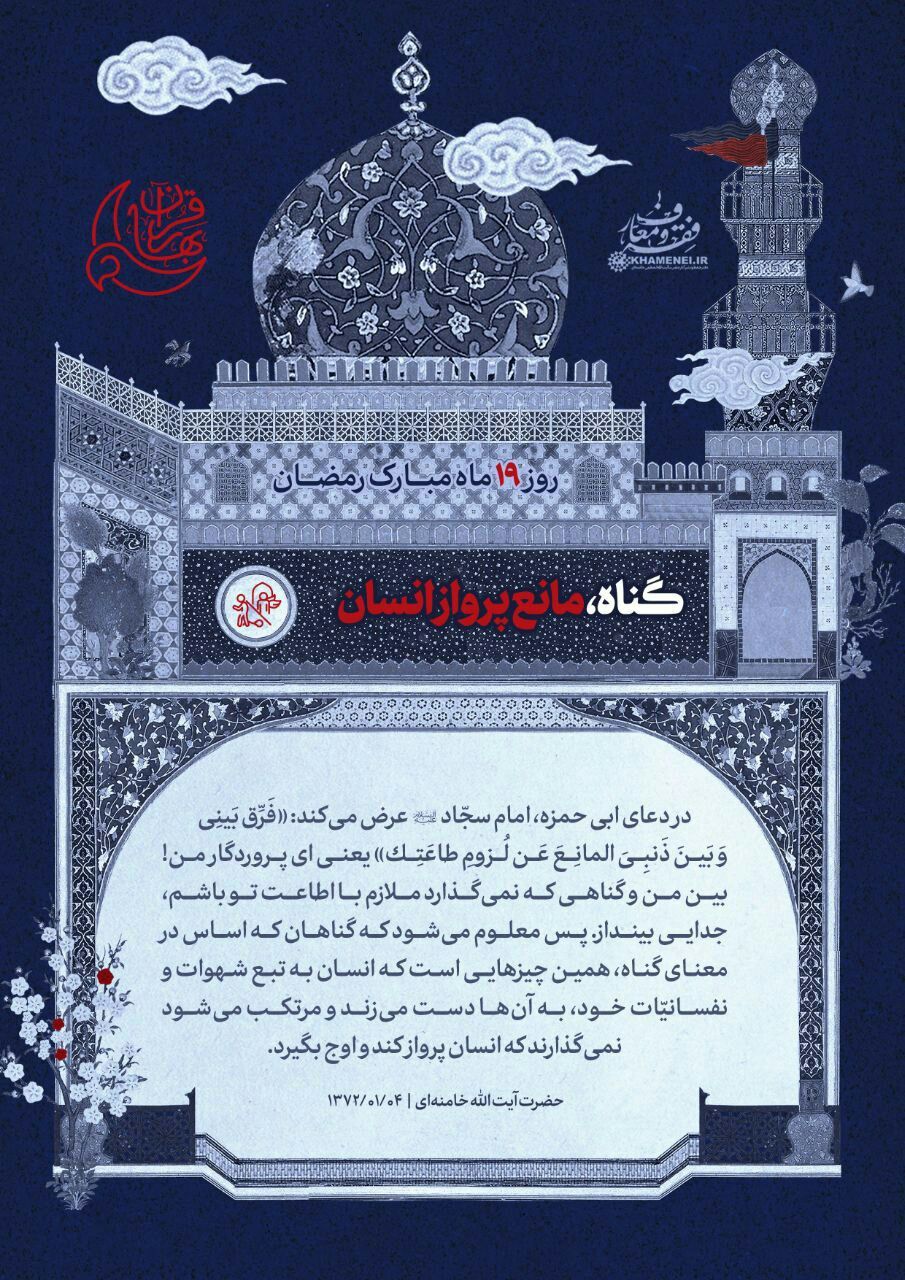 بهار قرآن
فقه و معارف
KHAMENEI.IR
روز ۱۹ ماه مبـارک رمضـان
گناه، مانع پرواز انسان
در دعای ابی حمزه، امام سجّاد علیه‌السلام عرض می‌کند: «فَرِّق بَینِی
وَ بَیـنَ ذَنبِـیَ المانِـعَ عَـن لُـزومِ طاعَتِـك» یعنـی ای پـروردگار مـن!
بیـن مـن و گناهـی کـه نمی‌گـذارد مـلازم بـا اطاعـت تـو باشـم،
جدایـی بینـداز. پـس معلـوم می‌شـود کـه گناهـان کـه اسـاس در
معنای گناه، همین چیزهایی است که انسان به تبع شهوات و
نفسـانیّات خـود، بـه آن‌هـا دسـت می‌زنـد و مرتکـب می‌شـود
نمی‌گذارند که انسان پرواز کند و اوج بگیرد.
حضرت آیت‌الله خامنه‌ای | ۱۳۷۲/۰۱/۰۴